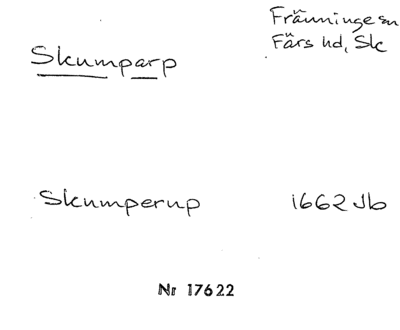 Skumparp
Fränninge sn
Färs hd, Sk
Skumperup
1662 Jb
Nr 17622